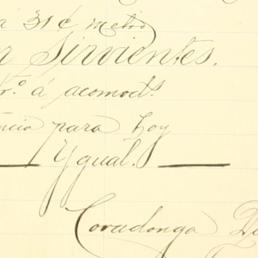 á 31¢ metro
Sirvientes.
tro. á acomods
ncia para hoy
Ygual.
Covadonga